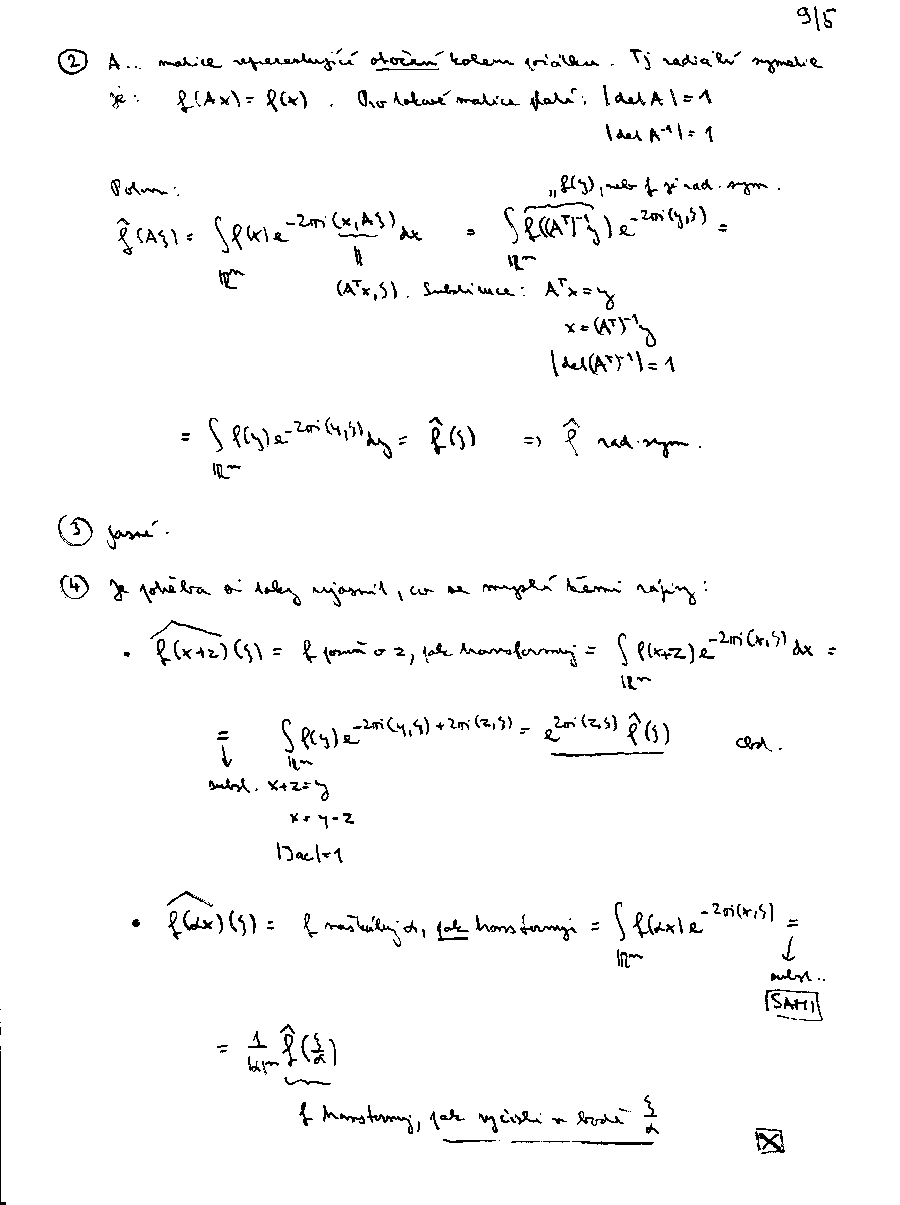 9/5
② A... matice reprezentující otočení kolem počátku. Tj radiální symetrie
je: f(Ax) = f(x). Pro takové matice platí: |det A| = 1
|det A⁻¹| = 1
Potom: "f(y), neb f je rad. sym.
f̂(Aξ) = ∫_{ℝⁿ} f(x) e^{-2πi(x,Aξ)} dx = ∫_{ℝⁿ} f((Aᵀ)⁻¹y) e^{-2πi(y,ξ)} =
(Aᵀx,ξ). Substituce: Aᵀx = y
x = (Aᵀ)⁻¹y
|det(Aᵀ)⁻¹| = 1
= ∫_{ℝⁿ} f(y) e^{-2πi(y,ξ)} dy = f̂(ξ) ⇒ f̂ rad. sym.
③ jasné.
④ Je potřeba si taky ujasnit, co se myslí těmi zápisy:
• \widehat{f(x+z)}(ξ) = f posuň o z, pak transformuj = ∫_{ℝⁿ} f(x+z) e^{-2πi(x,ξ)} dx =
= ∫_{ℝⁿ} f(y) e^{-2πi(y,ξ)+2πi(z,ξ)} = e^{2πi(z,ξ)} f̂(ξ) cbd.
subst. x+z = y
x = y-z
|Jac| = 1
• \widehat{f(αx)}(ξ) = f naškáluj α, pak transformuj = ∫_{ℝⁿ} f(αx) e^{-2πi(x,ξ)} =
subst..
SAMI
= 1/|α|ⁿ f̂(ξ/α)
f transformuj, pak vyčísli v bodě ξ/α